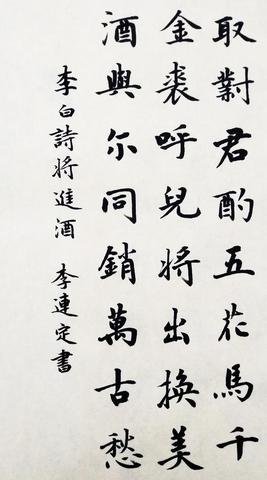 取對君酌五花馬千
金裘呼兒將出換美
酒與尔同銷萬古愁
李白詩將進酒 李連定書